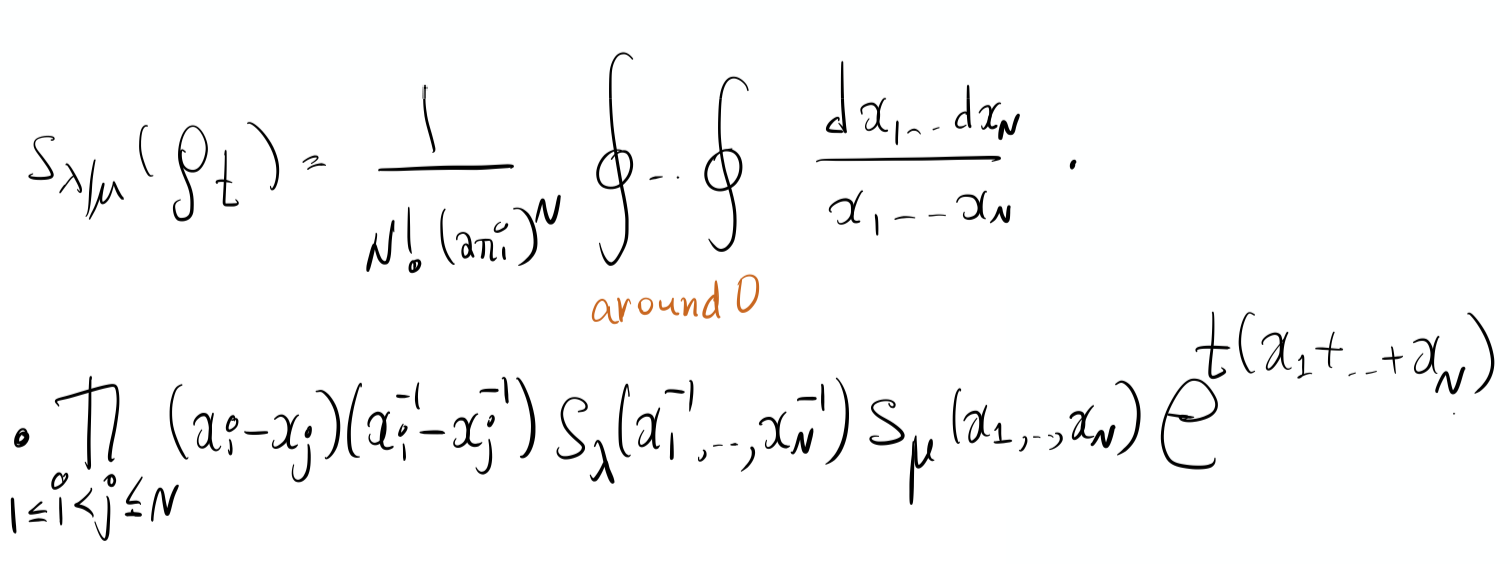 $S_{\lambda/\mu}(\rho_t) = \frac{1}{N!(2\pi i)^N} \oint \cdots \oint \frac{dx_1 \cdots dx_N}{x_1 \cdots x_N} \cdot$
around 0
$\cdot \prod_{1 \le i < j \le N} (x_i - x_j)(x_i^{-1} - x_j^{-1}) S_\lambda(x_1^{-1}, \ldots, x_N^{-1}) S_\mu(x_1, \ldots, x_N) e^{t(x_1 + \cdots + x_N)}$